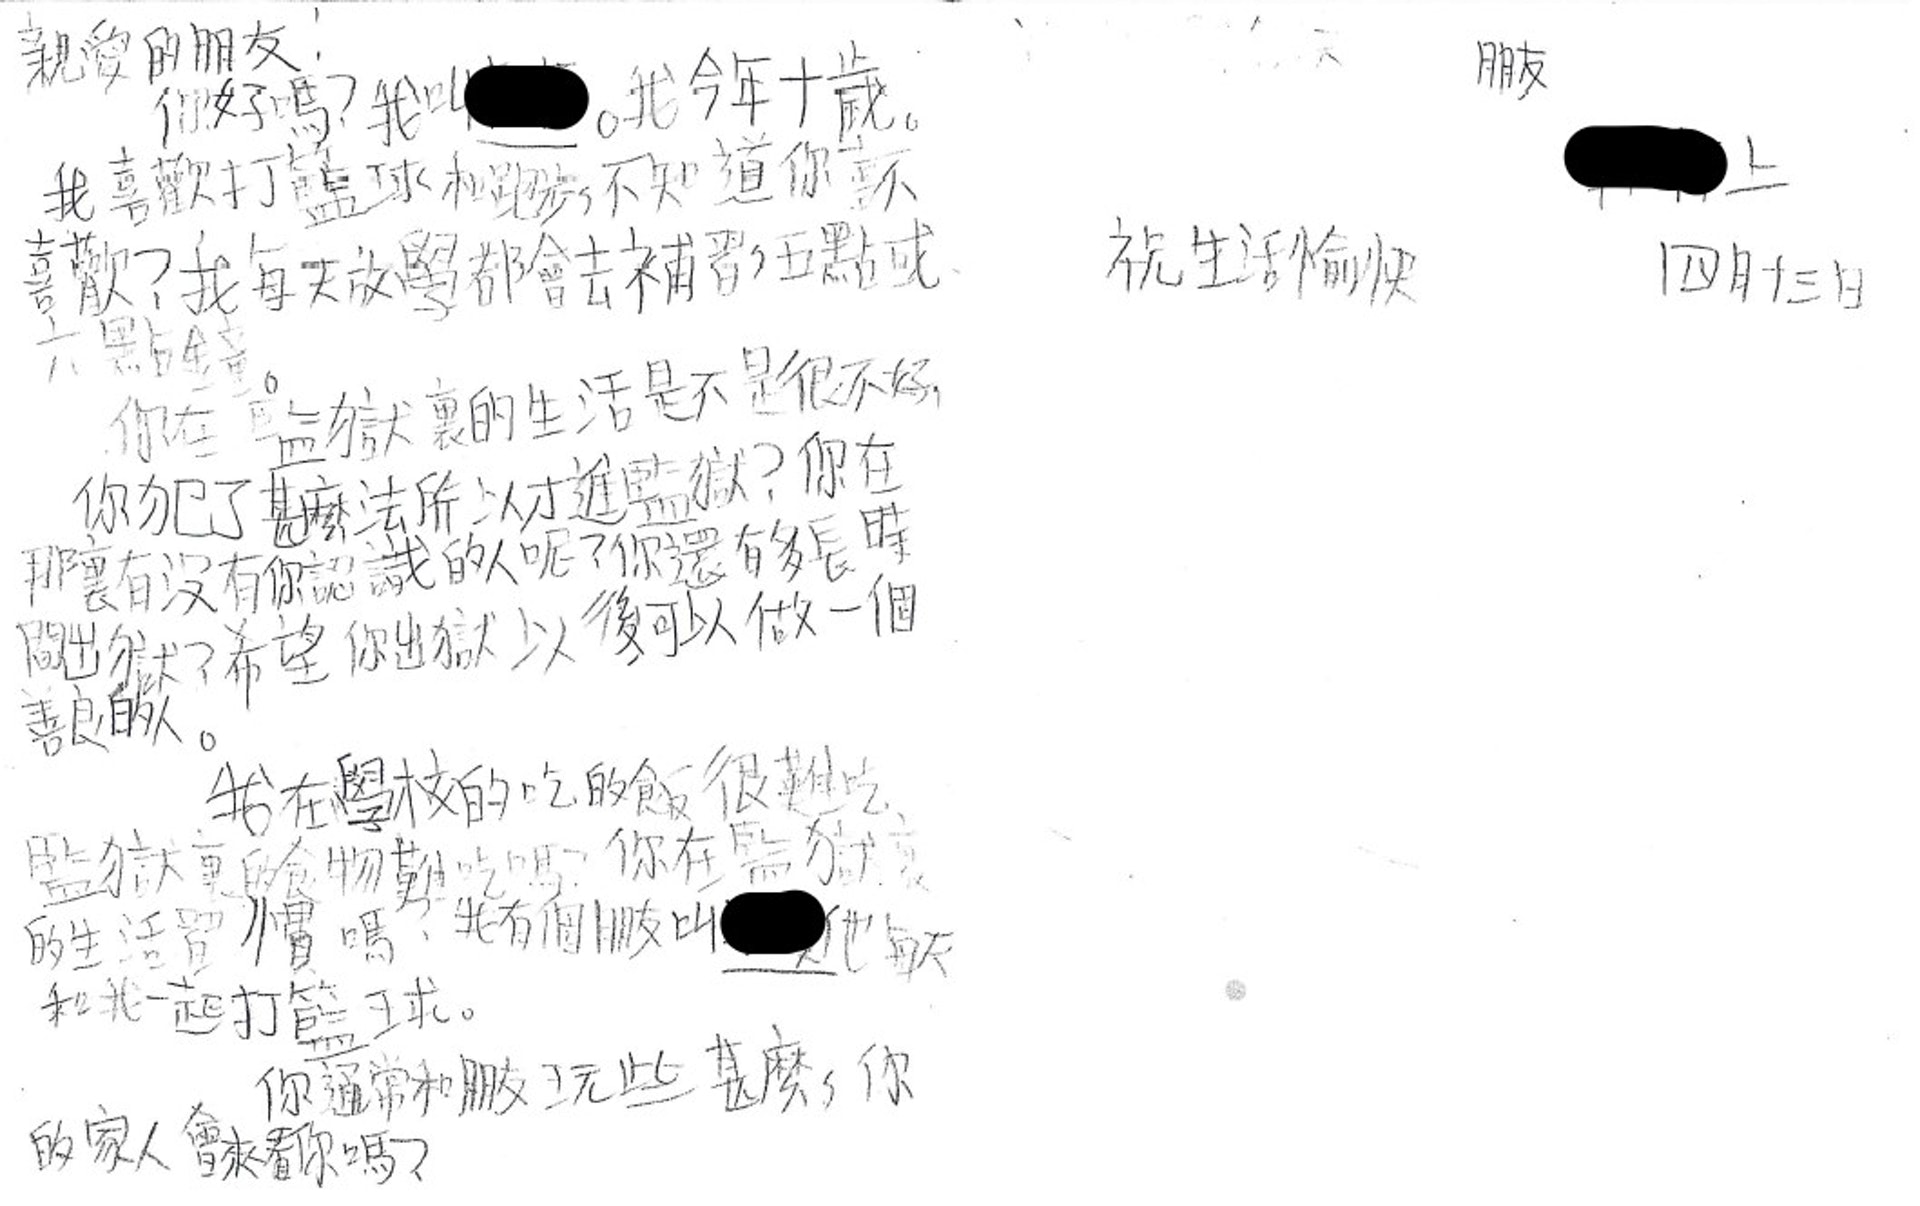 親愛的朋友！
你好嗎？我叫。我今年十歲。
我喜歡打籃球和跑步，不知道你喜不
喜歡？我每天放學都會去補習，五點或
六點鐘。
你在監獄裏的生活是不是很不好，
你犯了甚麼法所以才進監獄？你在
那裏有沒有你認識的人呢？你還有多長時
間出獄？希望你出獄以後可以做一個
善良的人。
我在學校的吃的飯很難吃，
監獄裏的食物難吃嗎？你在監獄裏
的生活習慣嗎？我有個朋友叫他每天
和我一起打籃球。
你通常和朋友玩些甚麼，你
的家人會來看你嗎？
朋友
上
祝生活愉快
四月十三日